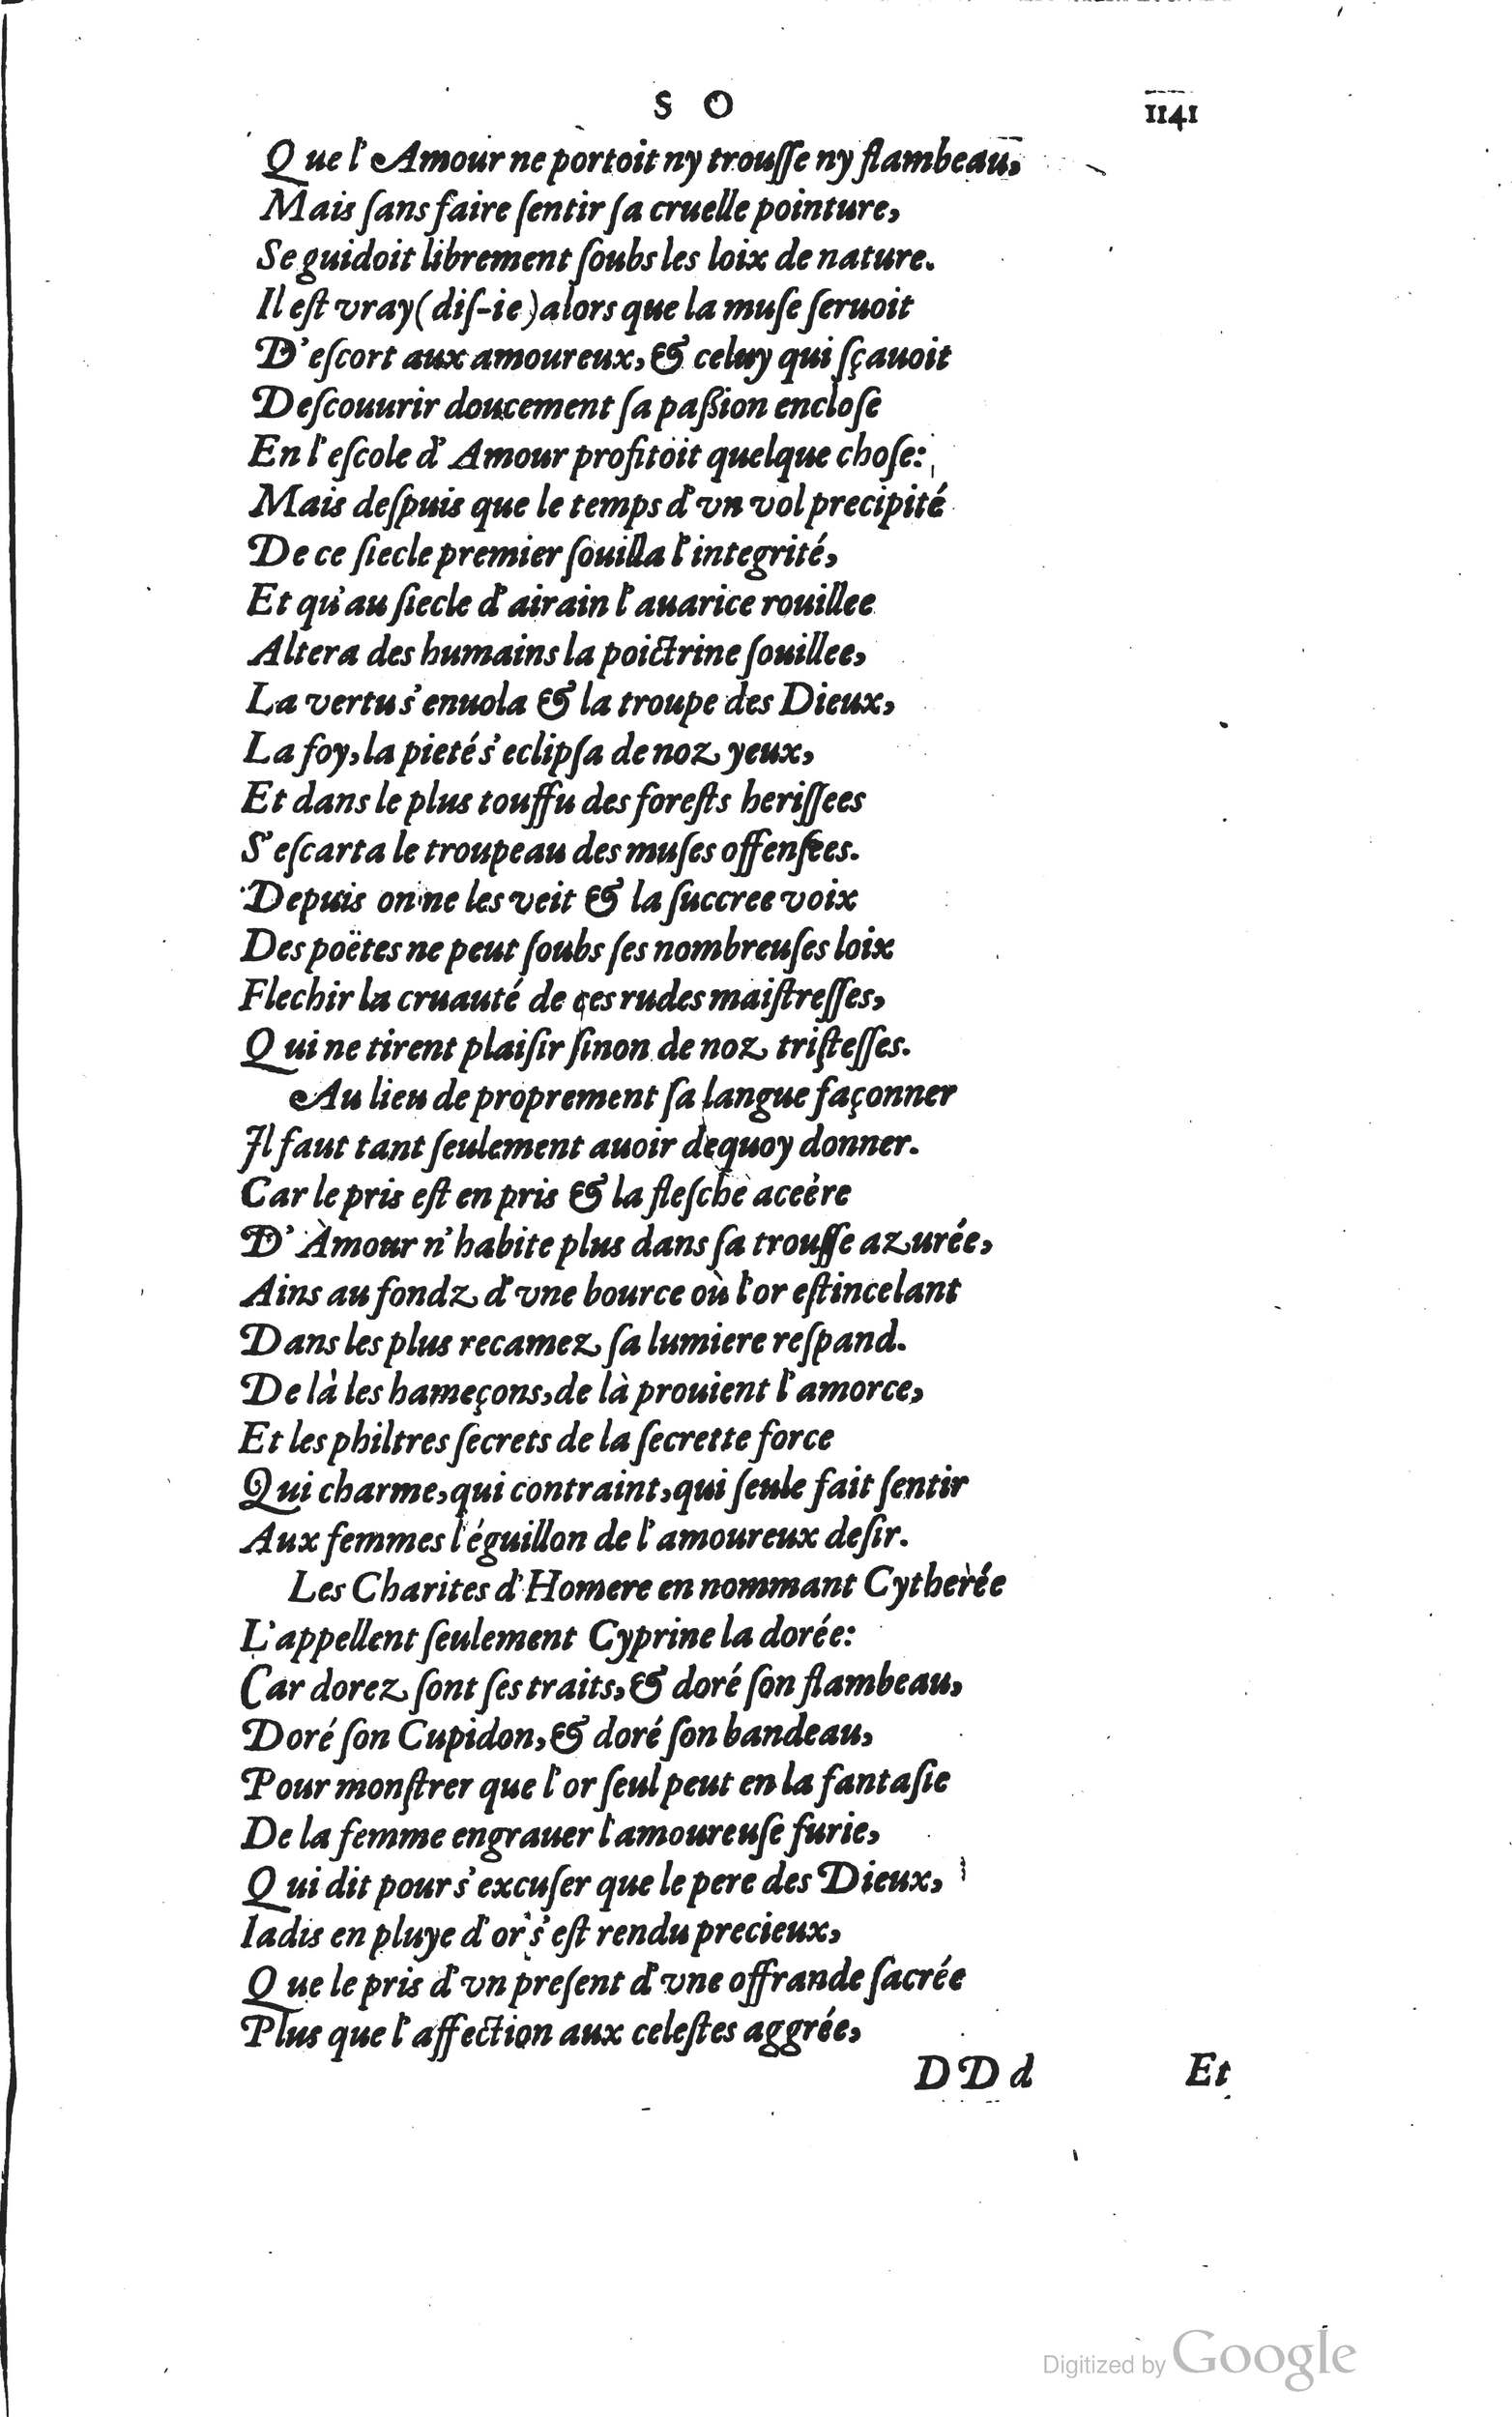 S O 1141
Que l'Amour ne portoit ny trouſſe ny flambeau,
Mais ſans faire ſentir ſa cruelle pointure,
Se guidoit librement ſoubs les loix de nature.
Il eſt vray (diſ-ie) alors que la muſe ſeruoit
D'eſcort aux amoureux, & celuy qui ſçauoit
Deſcouurir doucement ſa paßion encloſe
En l'eſcole d'Amour profitoit quelque choſe:
Mais deſpuis que le temps d'vn vol precipité
De ce ſiecle premier ſouilla l'integrité,
Et qu'au ſiecle d'airain l'auarice rouillee
Altera des humains la poictrine ſouillee,
La vertu s'enuola & la troupe des Dieux,
La foy, la pieté s'eclipſa de noz yeux,
Et dans le plus touffu des foreſts heriſſees
S'eſcarta le troupeau des muſes offenſees.
Depuis on ne les veit & la ſuccree voix
Des poëtes ne peut ſoubs ſes nombreuſes loix
Flechir la cruauté de ces rudes maiſtreſſes,
Qui ne tirent plaiſir ſinon de noz triſteſſes.
Au lieu de proprement ſa langue façonner
Il faut tant ſeulement auoir dequoy donner.
Car le pris eſt en pris & la fleſche aceère
D'Amour n'habite plus dans ſa trouſſe azurée,
Ains au fondz d'vne bource où l'or eſtincelant
Dans les plus recamez ſa lumiere reſpand.
De là les hameçons, de là prouient l'amorce,
Et les philtres ſecrets de la ſecrette force
Qui charme, qui contraint, qui ſeule fait ſentir
Aux femmes l'éguillon de l'amoureux deſir.
Les Charites d'Homere en nommant Cytherée
L'appellent ſeulement Cyprine la dorée:
Car dorez ſont ſes traits, & doré ſon flambeau,
Doré ſon Cupidon, & doré ſon bandeau,
Pour monſtrer que l'or ſeul peut en la fantaſie
De la femme engrauer l'amoureuſe furie,
Qui dit pour s'excuſer que le pere des Dieux,
Iadis en pluye d'or s'eſt rendu precieux,
Que le pris d'vn preſent d'vne offrande ſacrée
Plus que l'affection aux celeſtes aggrée,
DDd Et
Digitized by Google